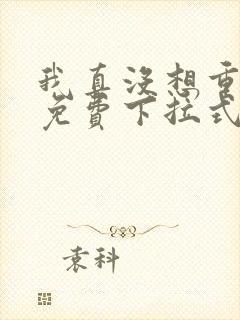 我真没想重
免费下拉式
袁科